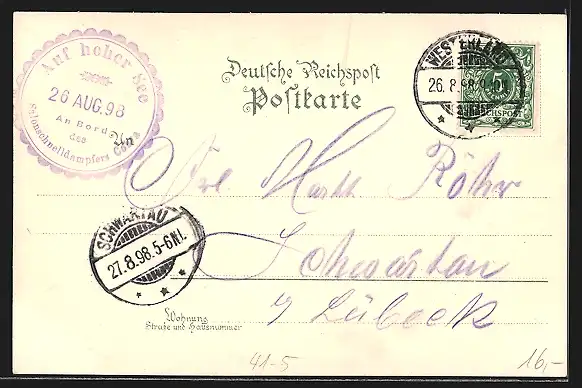 Auf hoher See
26 AUG. 98
An Bord
des
Salonschnelldampfers Cobra
Deutsche Reichspost
Postkarte
WESTERLAND
26. 8. 98
5
REICHSPOST
An
Frl. Marth Röhr
Schwartau
b/ Lübeck
SCHWARTAU
27.8.98.5-6N.
Wohnung
Straße und Hausnummer
41-5
16,-